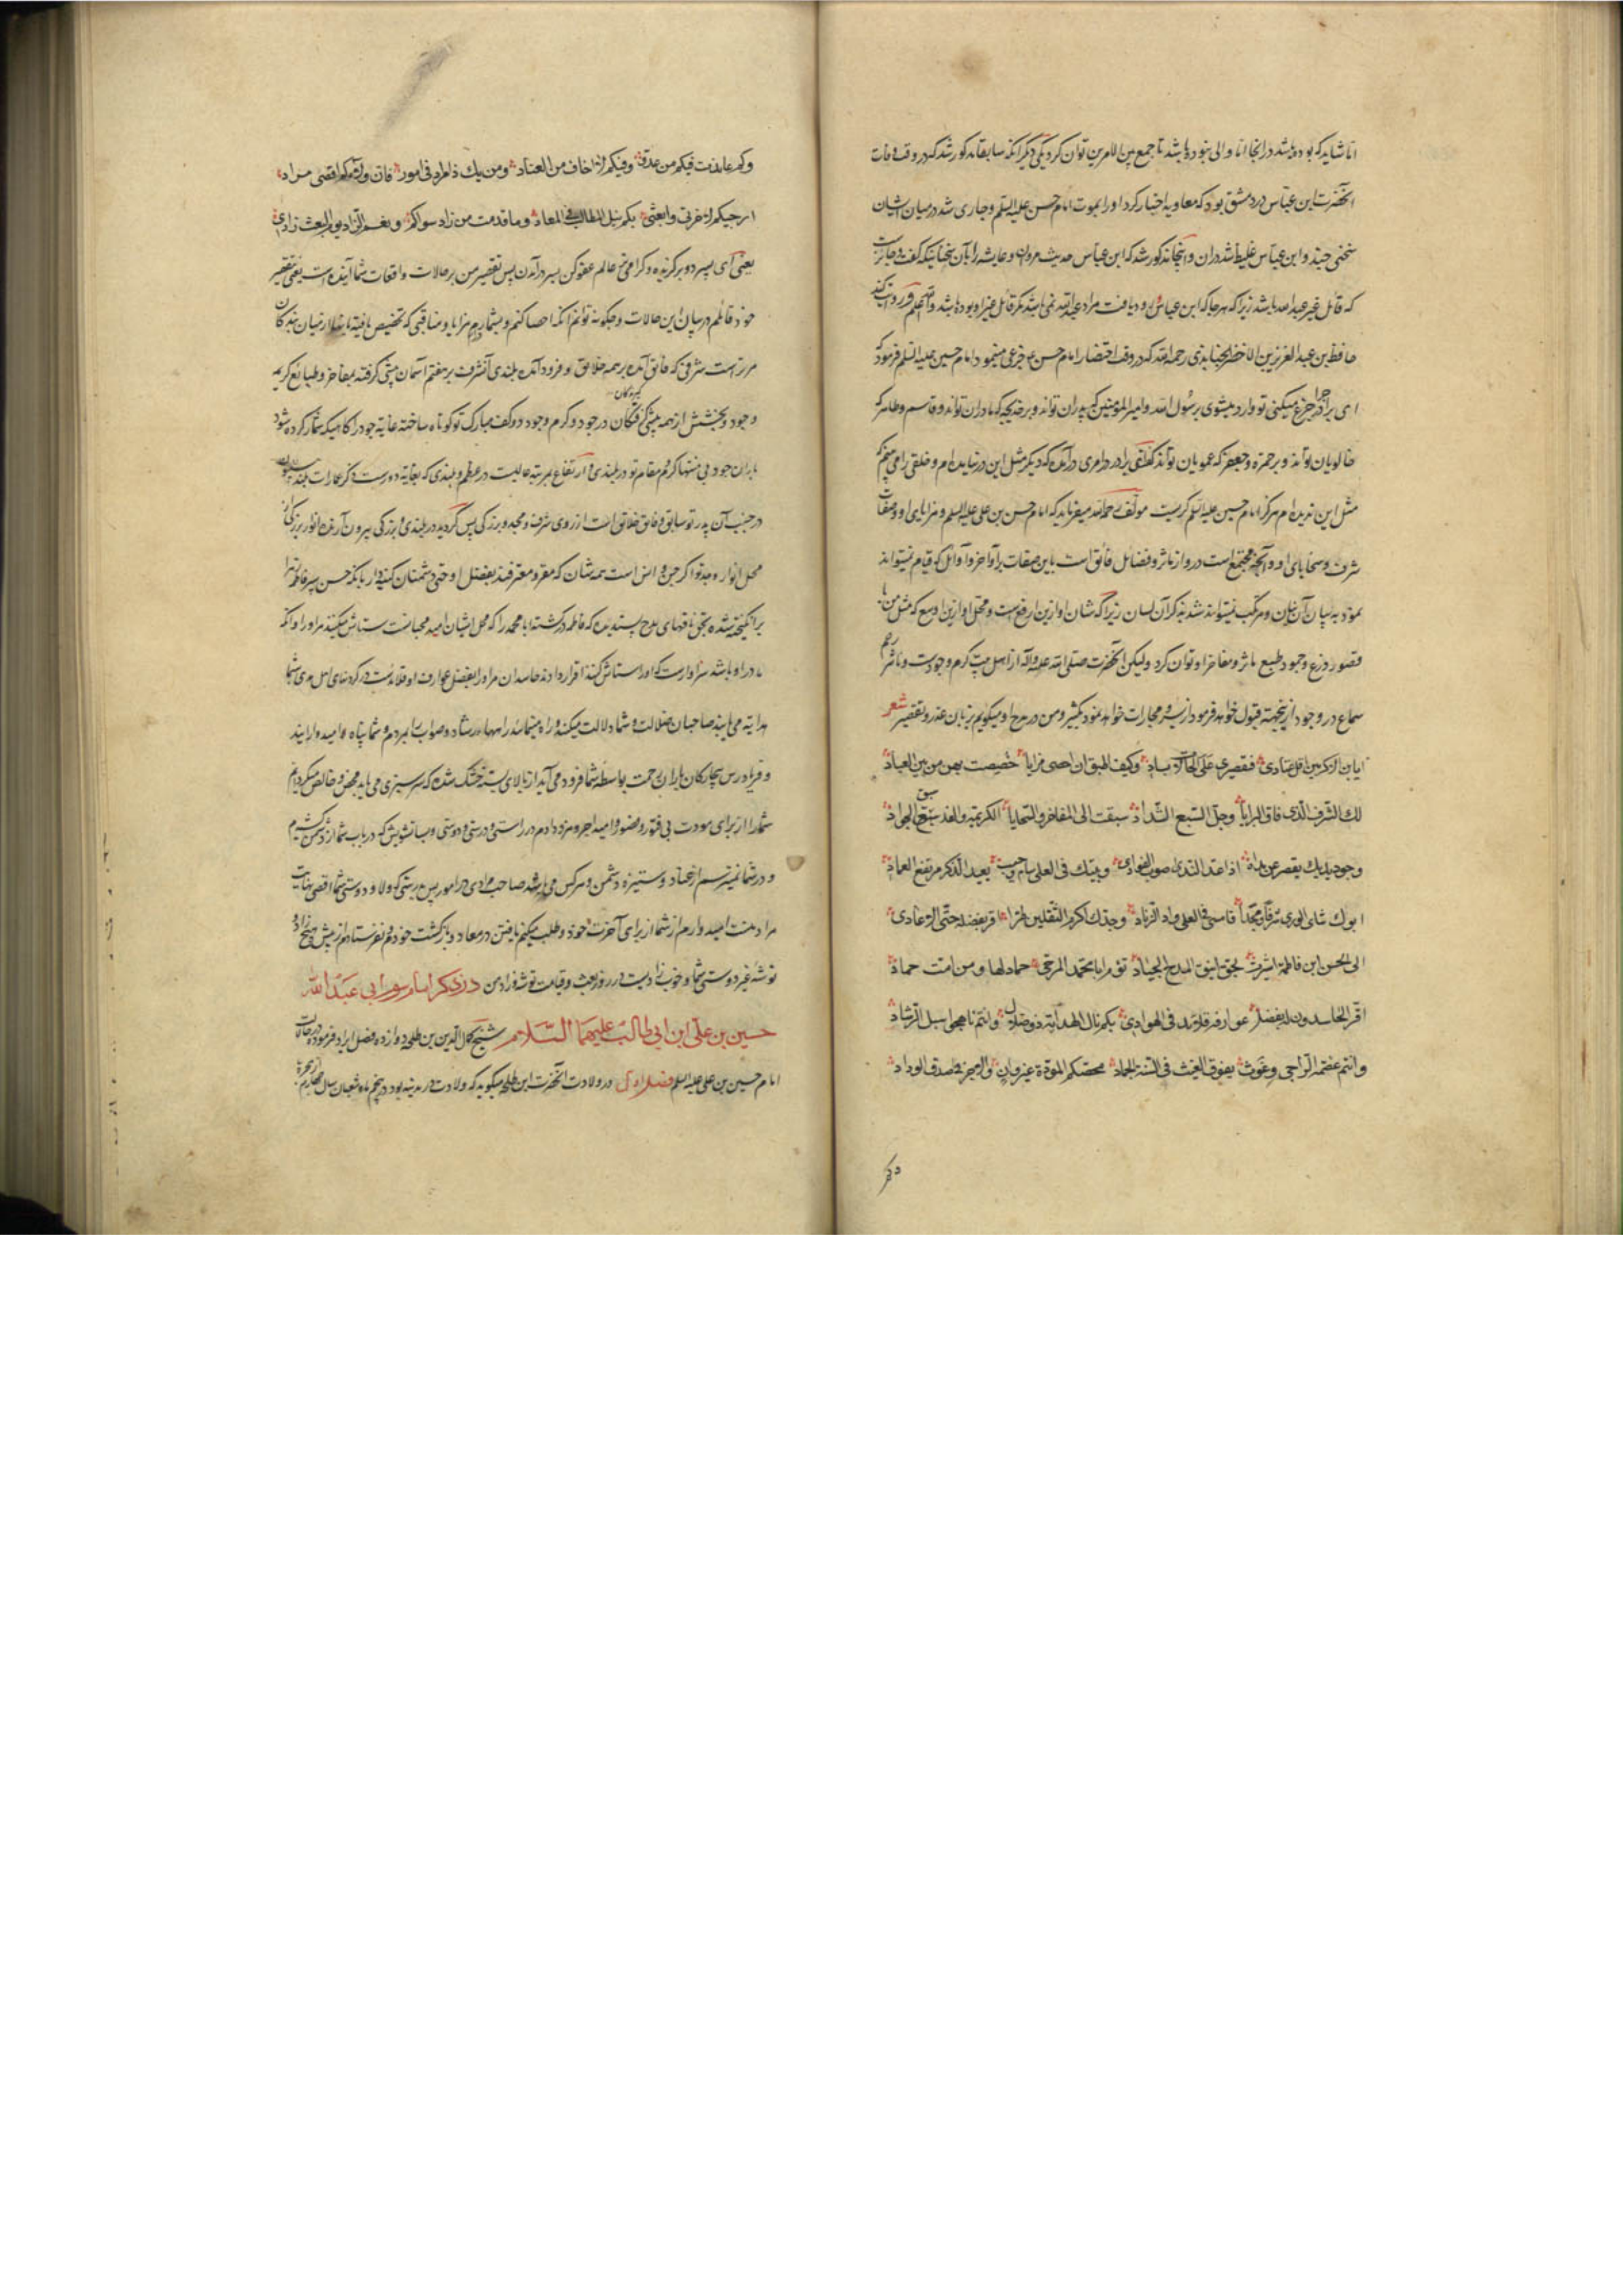 انا شاید که بوده باشد در انجا انا والی نبوده باشد تا جمع بین الامرین توان کرد یکی دیگر انکه سابقا مذکور شد که در وقت وفات
آنحضرت ابن عباس در دمشق بود که معاویه اخبار کرد او را بموت امام حسن علیه السلم و جاری شد در میان ایشان
سخنی چند و ابن عباس غلیظ شد در ان و اینجا مذکور شد که ابن عباس حدیث مروان و عایشه را بآن سخنان که گفت
که قائل غیر عبد الله باشد زیرا که هر جا که ابن عباس مراد عبد الله نمی باشد مگر قائل غیر او بوده باشد والله اعلم
حافظ بن عبد العزیز بن الاخضر الجنابذی رحمه الله که در وقت احتضار امام حسن ع جزعی مینمود امام حسین علیه السلم فرمود که
ای برادر چرا جزع میکنی تو وارد میشوی برسول الله و امیر المومنین که پدران تواند و بر خدیجه که مادران تواند و قاسم و طاهر که
خالویان تواند و بر حمزه و جعفر که عمویان تواند گفت ای برادر در امری درآمده‌ام که دیگر مثل این در نیامده‌ام و خلقی را می بینم که
مثل این ندیده‌ام هرگز امام حسین علیه السلم گریست مولف رحمه الله میفرماید که امام حسن بن علی علیه السلم و مزایای او و صفات
شرف و سجایای او و آنچه مجتمع است در او از مآثر و فضایل فائق است باین صفات بر اواخر و اوائل که قیام نمیتواند
نمود به بیان آن بنان و مرتکب نمیتواند شد بذکر آن لسان زیرا که شان او ازین ارفع است و محل او ازین اوسع که مثل من با
قصور ذرع و جمود طبع مآثر و مفاخر او توان کرد ولیکن آنحضرت صلی الله علیه وآله از اهل بیت کرم و جودست و ناشر
سماع در وجود ازینجهت قبول خواهد فرمود از یسیر و مجازات خواهد نمود بکثیر و من در مدح او میگویم بزبان عذر و تقصیر شعر
ایا بن الاکرمین اقل عثاری فتقصیری علی الحالات باد وکیف اطیق ان احصی مزایا خصصت بهن من بین العباد
لک الشرف الذی فاق البرایا وجل السبع الشداد سبقت الی المفاخر والسجایا الکریمة والندی سبق الجواد
وجود یدیک یقصر عن مداه اذا عد الندی صوب الغوادی وبیتک فی العلی سام رحیب بعید الذکر مرتفع العماد
ابوک شای الوری شرفا ومجدا فامسی فی العلی واری الزناد وجدک اکرم الثقلین طرا اقر بفضله حتی الاعادی
الی الحسن ابن فاطمة اثیرت بحق اینق المدح الجیاد تؤم ابا محمد المرجی حمادلها ومن امت حماد
اقر الحاسدون له بفضل عوارفه قلائد فی الهوادی بکم نال الهدایة ذو ضلال وانتم ناهجوا سبل الرشاد
وانتم عصمة الراجی وغوث یفوق الغیث فی السنة الجماد محضتکم المودة غیر وان وارجو الاجر فی صدق الوداد
وکم
وکم عاندت فیکم من عدو وفیکم لا اخاف من العناد ومن یک ذا مراد فی امور فان ولائکم اقصی مراد
ارجیکم لاخرتی وابغی بکم نیل المطالب فی المعاد وما قدمت من زاد سواکم ونعم الزاد یوم البعث زادی
یعنی ای پسر دو برگزیده و گرامی عالم عفو کن بسر درآمدن پس تقصیر من بر حالات و اقعات شما آینده است یعنی بتقصیر
خود قائلم در بیان این حالات و چگونه توانم آنکه احصا کنم و بشمارم مزایا و مناقبی که تخصیص یافته بآنها از میان بندگان
مر تراست شرفی که فائق آمده بر همه خلائق و فرود آمده بلندی آن شرف بر هفتم آسمان پیشی گرفته بمفاخر و طبایع کریمه
و جود و بخشش از همه پیشی گرفتگان در جود و کرم و جود دو کف مبارک تو کوتاه ساخته غایة جود را گاهیکه شمار کرده شود
باران جود بی منتها کرم و مقام تو در بلندی و ارتفاع بمرتبه عالیست در عظم و بلندی که بغایة دورست ذکر عمارات بلند
در جنب آن پدر تو سابق و فایق خلائق است از روی شرف و مجد و بزرگی پس گردیده در بلندی و بزرگی بیرون آرنده انوار بزرگی از
محل انوار و جد تو اکرم جن و انس است همه شان که مقر و معترفند بفضل او حتی دشمنان کینه دار بانکه حسن پسر فاطمه زهرا
برانگیخته شده بحق ناقهای مدح پسندیده که ابا محمد را که محل ایشان امید ستایش میکنند مر او را و انکه
مادر او باشد سزاوارست که او را ستایش کنند اقرار دادند حاسدان مر او را بفضل عوارف او قلائدست در گردنهای اهل هدی بشما
هدایة می یابند صاحبان ضلالت و شما دلالت میکنید و راه مینمائید راههای رشاد و صواب بمردم و شما پناه امیدوارانید
و فریاد رس بیچارگان باران رحمت بواسطه شما فرود می آید از بالای خشک شده که سرسبزی می یابد محض و خالص میگردیم
شما را از برای مودت بی فتور و قصور و امید اجر و مزد دارم در راستی و درستی و دوستی و بسا تشویش که در باب شما از دشمن کشیدم
و در شما نمیترسم از عناد و ستیزه دشمن و هر کس می باشد صاحب مرادی در امور پس بدرستی که ولا و دوستی شما اقصی نهایت
مراد منست امید وارم از شما از برای آخرت خود و طلب میکنم یافتن در معاد و بازگشت خود و نفرستادم از پیش هیچ زاد و
توشه غیر دوستی شما و خوب زادیست در روز بعث و قیامت توشه و زاد من در ذکر امام سوم ابی عبد الله
حسین بن علی ابن ابی طالب علیهما السلام شیخ کمال الدین بن طلحه دوازده فصل ایراد فرموده در حالات
امام حسین بن علی علیه السلم فصل اول در ولادت آنحضرت ابن طلحه میگوید که ولادت در مدینه بود در پنجم ماه شعبان سال چهارم از هجرة